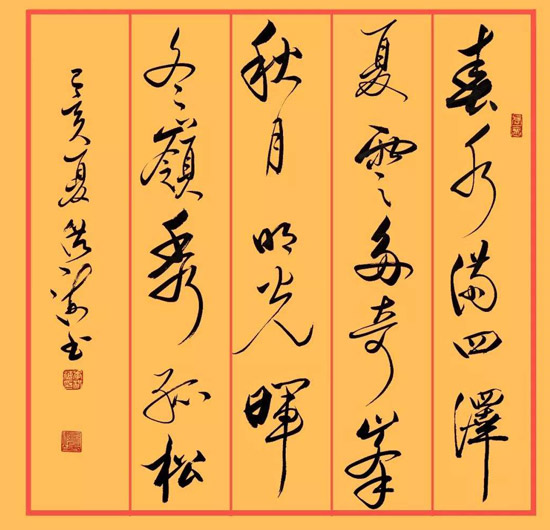 春水满四澤
夏雲多奇峯
秋月明光暉
冬嶺秀孤松
己亥夏书